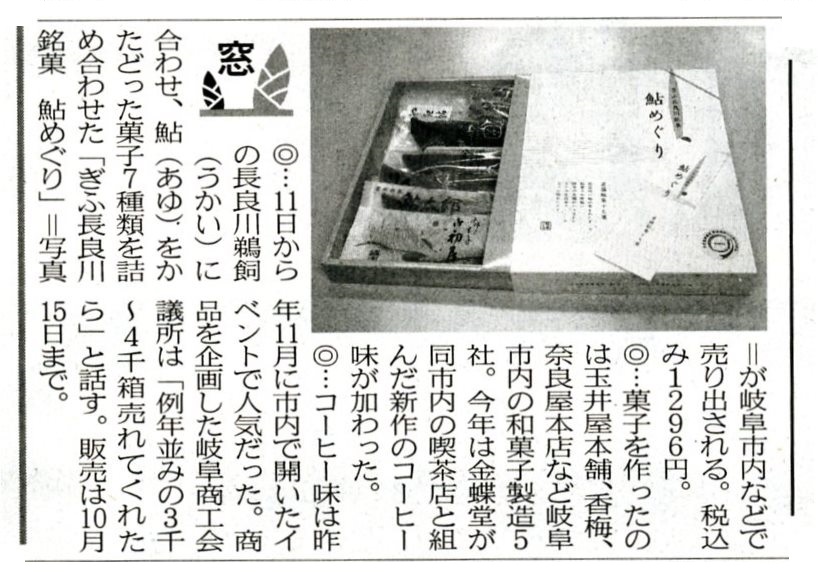 窓
◎…11日から
の長良川鵜飼
(うかい)に
合わせ、鮎(あゆ)をか
たどった菓子7種類を詰
め合わせた「ぎふ長良川
銘菓 鮎めぐり」=写真
=が岐阜市内などで
売り出される。税込
み1296円。
◎…菓子を作ったの
は玉井屋本舗、香梅、
奈良屋本店など岐阜
市内の和菓子製造5
社。今年は金蝶堂が
同市内の喫茶店と組
んだ新作のコーヒー
味が加わった。
◎…コーヒー味は昨
年11月に市内で開いたイ
ベントで人気だった。商
品を企画した岐阜商工会
議所は「例年並みの3千
~4千箱売れてくれた
ら」と話す。販売は10月
15日まで。
鮎めぐり
鮎めぐり